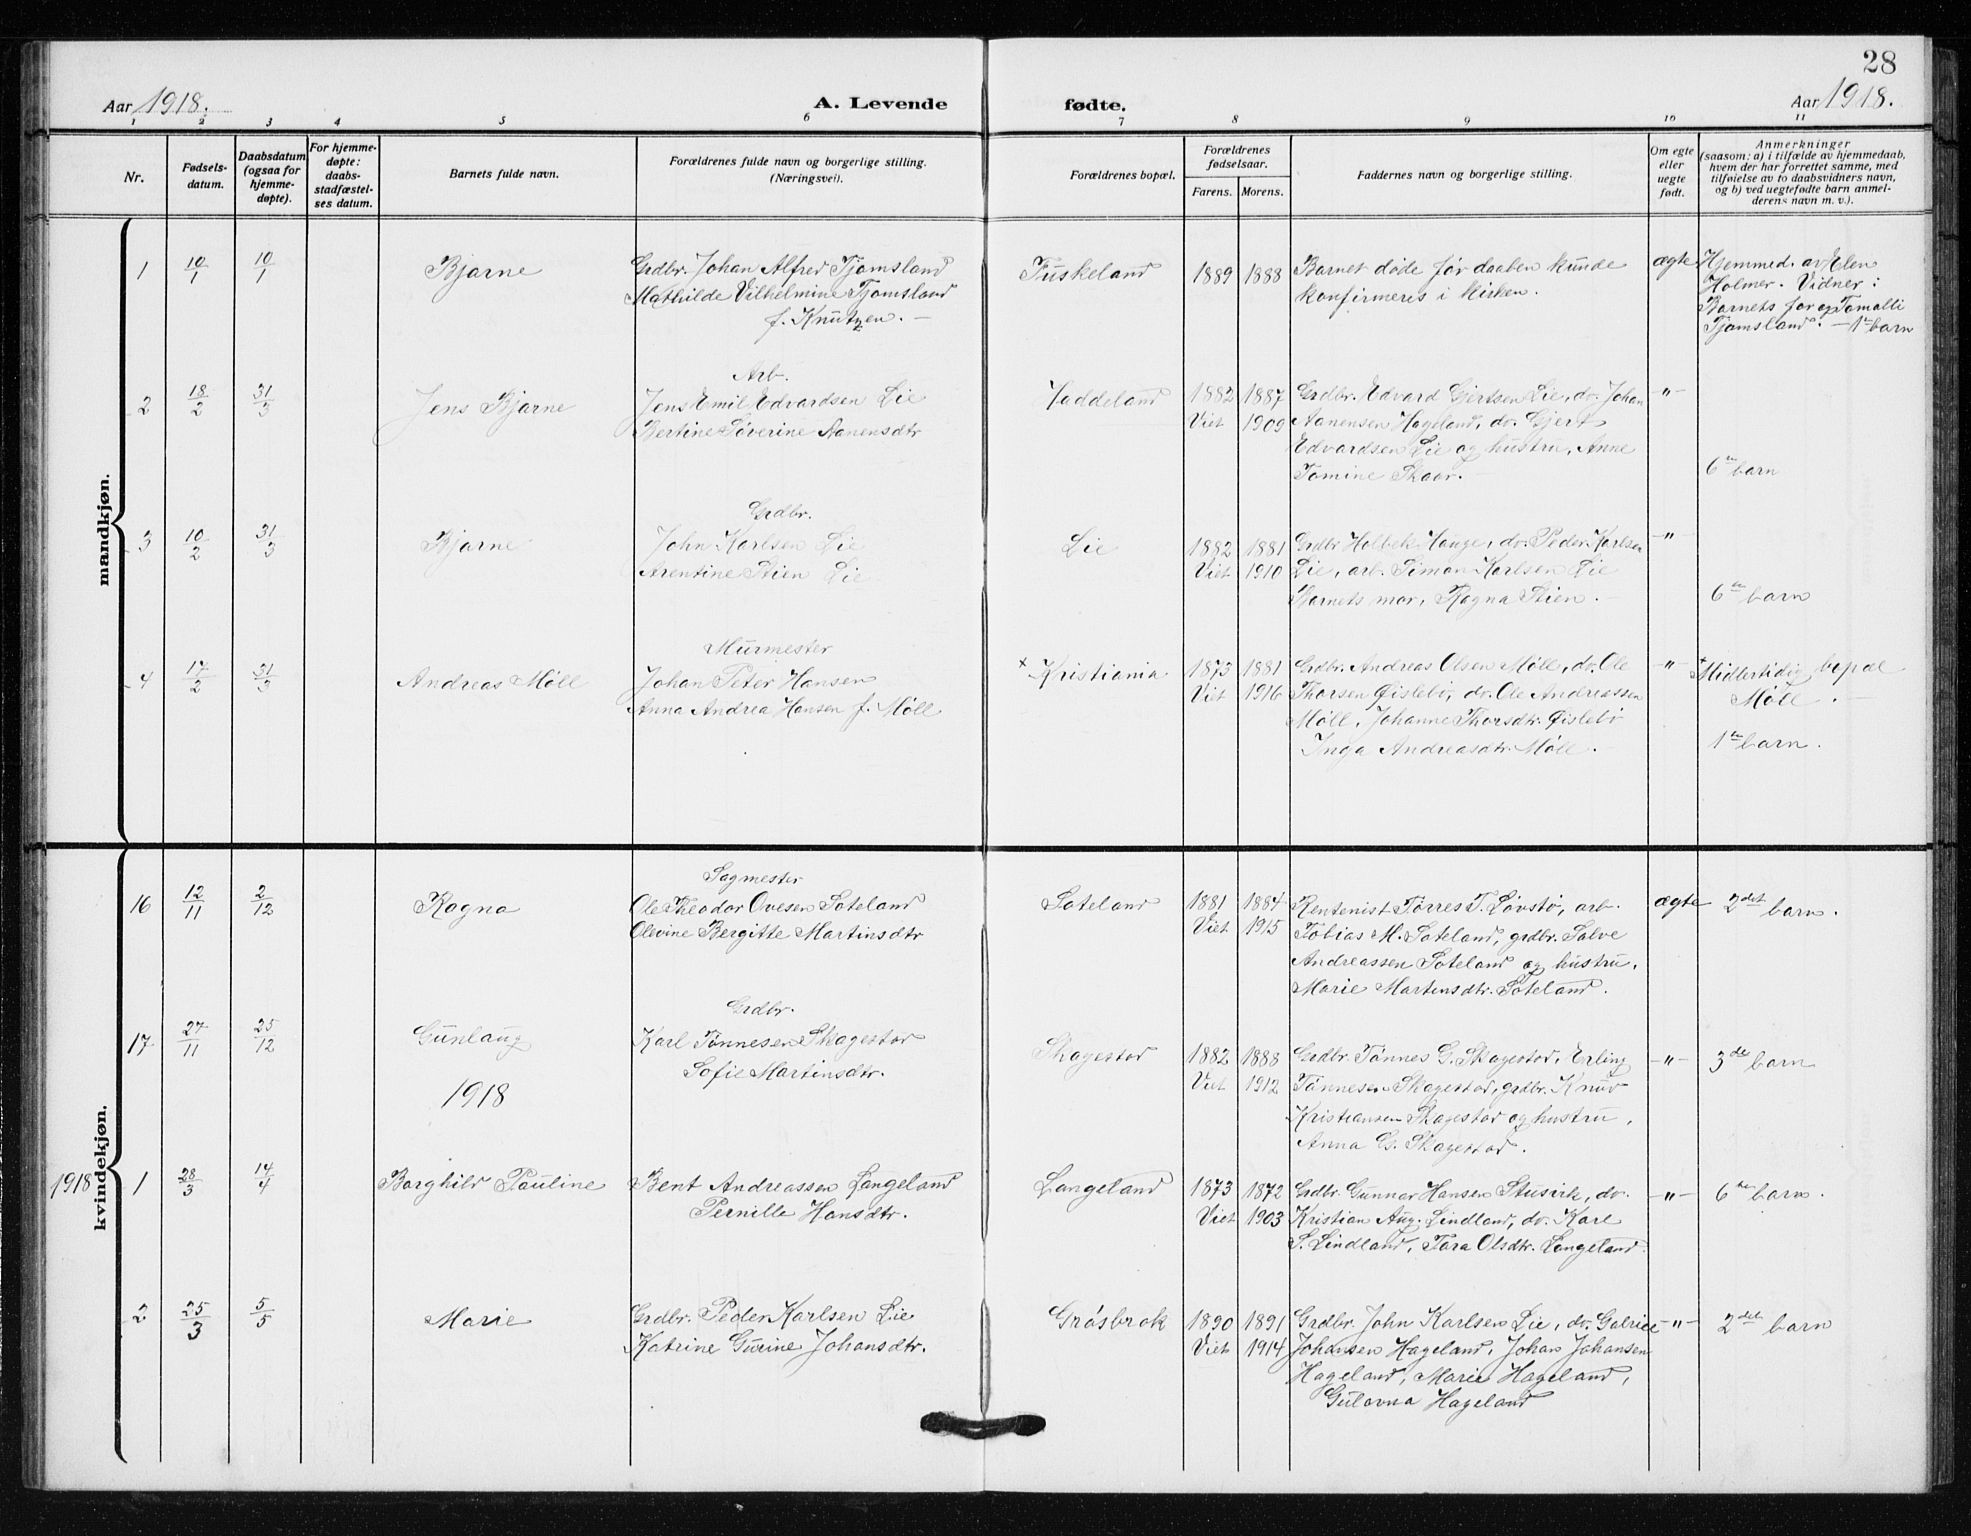 28
Aar 1918.
A. Levende
fødte.
Aar 1918.
1 2 3 4 5 6 7 8 9 10 11
Nr.
Fødsels-
datum.
Daabsdatum
(ogsaa for
hjemme-
døpte).
For hjemme-
døpte:
daabs-
stadfæstel-
ses datum.
Barnets fulde navn.
Forældrenes fulde navn og borgerlige stilling.
(Næringsvei).
Forældrenes bopæl.
Forældrenes
fødselsaar.
Farens. Morens.
Faddernes navn og borgerlige stilling.
Om egte
eller
uegte
født.
Anmerkninger
(saasom: a) i tilfælde av hjemmedaab,
hvem der har forrettet samme, med
tilføielse av to daabsvidners navn,
og b) ved uegtefødte barn anmel-
derens navn m. v.).
mandkjøn.
1 10/1 10/1 Bjarne
Grdbr. Johan Alfred Tjomsland
Mathilde Vilhelmine Tjomsland
f. Knutzen. —
Fuskeland 1889 1888
Barnet døde før daaben kunde
konfirmeres i kirken.
ægte
Hjemmed. av Elen
Holmer. Vidner:
Barnets far og Tomalli
Tjomsland. — 1te barn
2 18/2 31/3 Jens Bjarne
Arb.
Jens Emil Edvardsen Lie
Bertine Søverine Aanensdtr
Vaddeland 1882 1887
Viet 1909
Grdbr. Edvard Gjertsen Lie, do. Johan
Aanensen Hageland, do. Gjert
Edvardsen Lie og hustru, Anne
Tomine Skaar. —
—"—
6te barn
3 10/2 31/3 Bjarne
Grdbr.
John Karlsen Lie
Arentine Stien Lie
Lie 1882 1881
Viet 1910
Grdbr Holbek Hauge, do. Peder Karlsen
Lie, arb. Simon Karlsen Lie
Barnets mor, Ragna Stien. —
—"—
6te barn
4 17/2 31/3 Andreas Møll
Murmester
Johan Peter Hansen
Anna Andrea Hansen f. Møll
× Kristiania 1873 1881
Viet 1916
Grdbr. Andreas Olsen Møll, do. Ole
Thorsen Øislebø, do. Ole Andreassen
Møll, Johanne Thorsdtr. Øislebø
Inga Andreasdtr. Møll. —
—"—
× Midlertidig bopæl
Møll. —
1te barn.
kvindekjøn.
16 12/11 2/12 Ragna
Sagmester
Ole Theodor Ovesen Soteland
Olevine Bergitte Martinsdtr
Soteland 1881 1884
Viet 1915
Rentenist Tørres T. Løvstø, arb.
Tobias M. Soteland, grdbr. Salve
Andreassen Soteland og hustru,
Marie Martensdtr. Soteland.
ægte
2det barn.
17 27/11 25/12 Gunlaug
Grdbr.
Karl Tønnesen Skagestad
Sofie Martinsdtr.
Skagestad 1882 1888
Viet 1912
Grdbr. Tønnes G. Skagestad, Erling
Tønnesen Skagestad, grdbr. Knud
Kristiansen Skagestad og hustru,
Anna G. Skagestad.
—"—
3de barn
1918
1918 1 28/3 14/4 Borghild Pauline
Bent Andreassen Langeland
Pernille Hansdtr.
Langeland 1873 1872
Viet 1903
Grdbr. Gunnar Hansen Stusvik, do.
Kristian Aug. Lindland, do. Karl
S. Lindland, Tara Olsdtr. Langeland.
—"—
6te barn.
2 25/3 5/5 Marie
Grdbr. Peder Karlsen Lie
Katrine Gurine Johansdtr.
Grøsbrok 1890 1891
Viet 1914
Grdbr. John Karlsen Lie, do. Gabriel
Johansen Hageland, Johan Johansen
Hageland, Marie Hageland,
Gulovna Hageland
—"—
2det barn